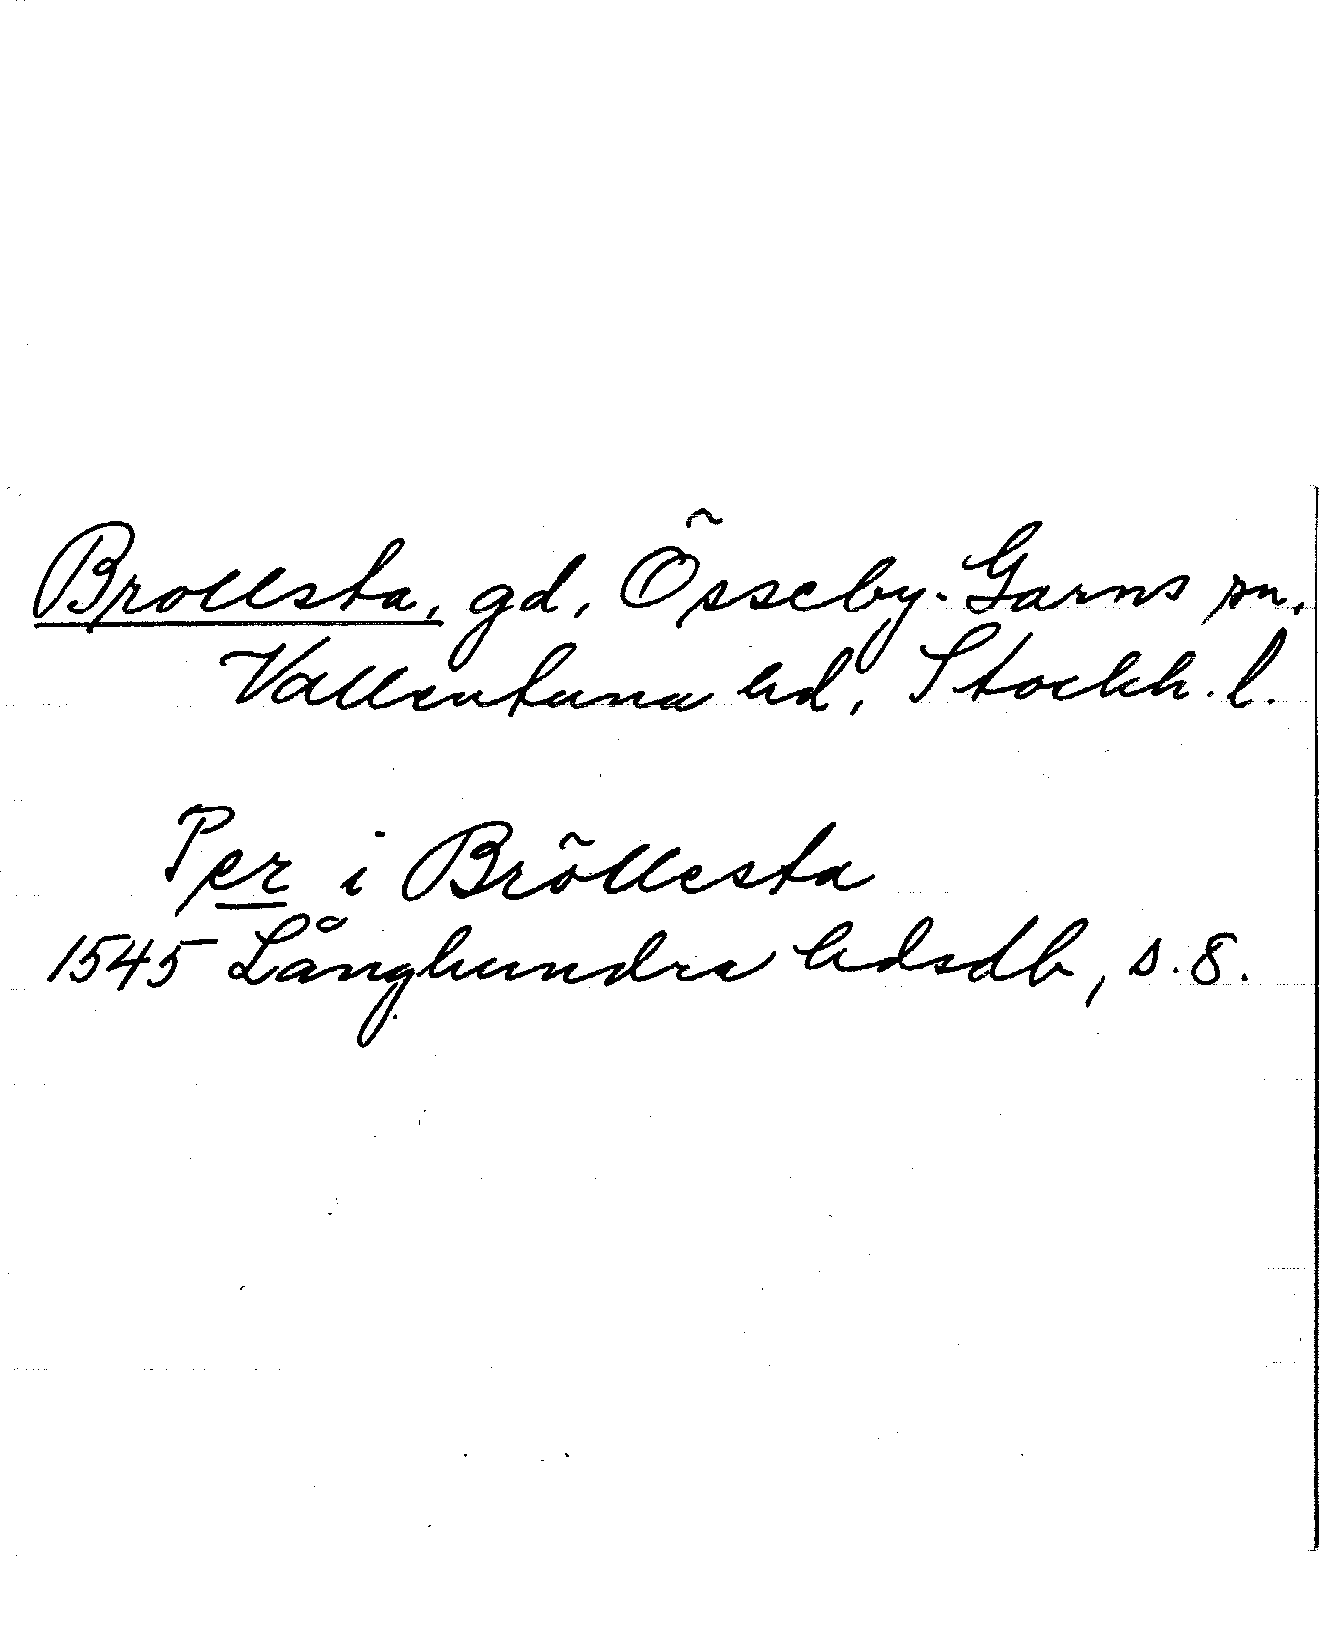 Brollsta, gd, Össeby-Garns sn,
Vallentuna hd, Stockh. l.
Per i Bröllesta
1545 Långhundra hdsdb, s. 8.